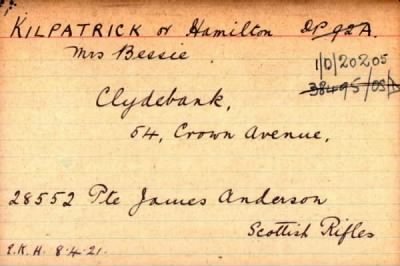 KILPATRICK or Hamilton DP 92A.
Mrs Bessie
1/0/20205
38495/05A
Clydebank,
54, Crown Avenue,
28552 Pte James Anderson
Scottish Rifles
E.K.H. 8.4.21.